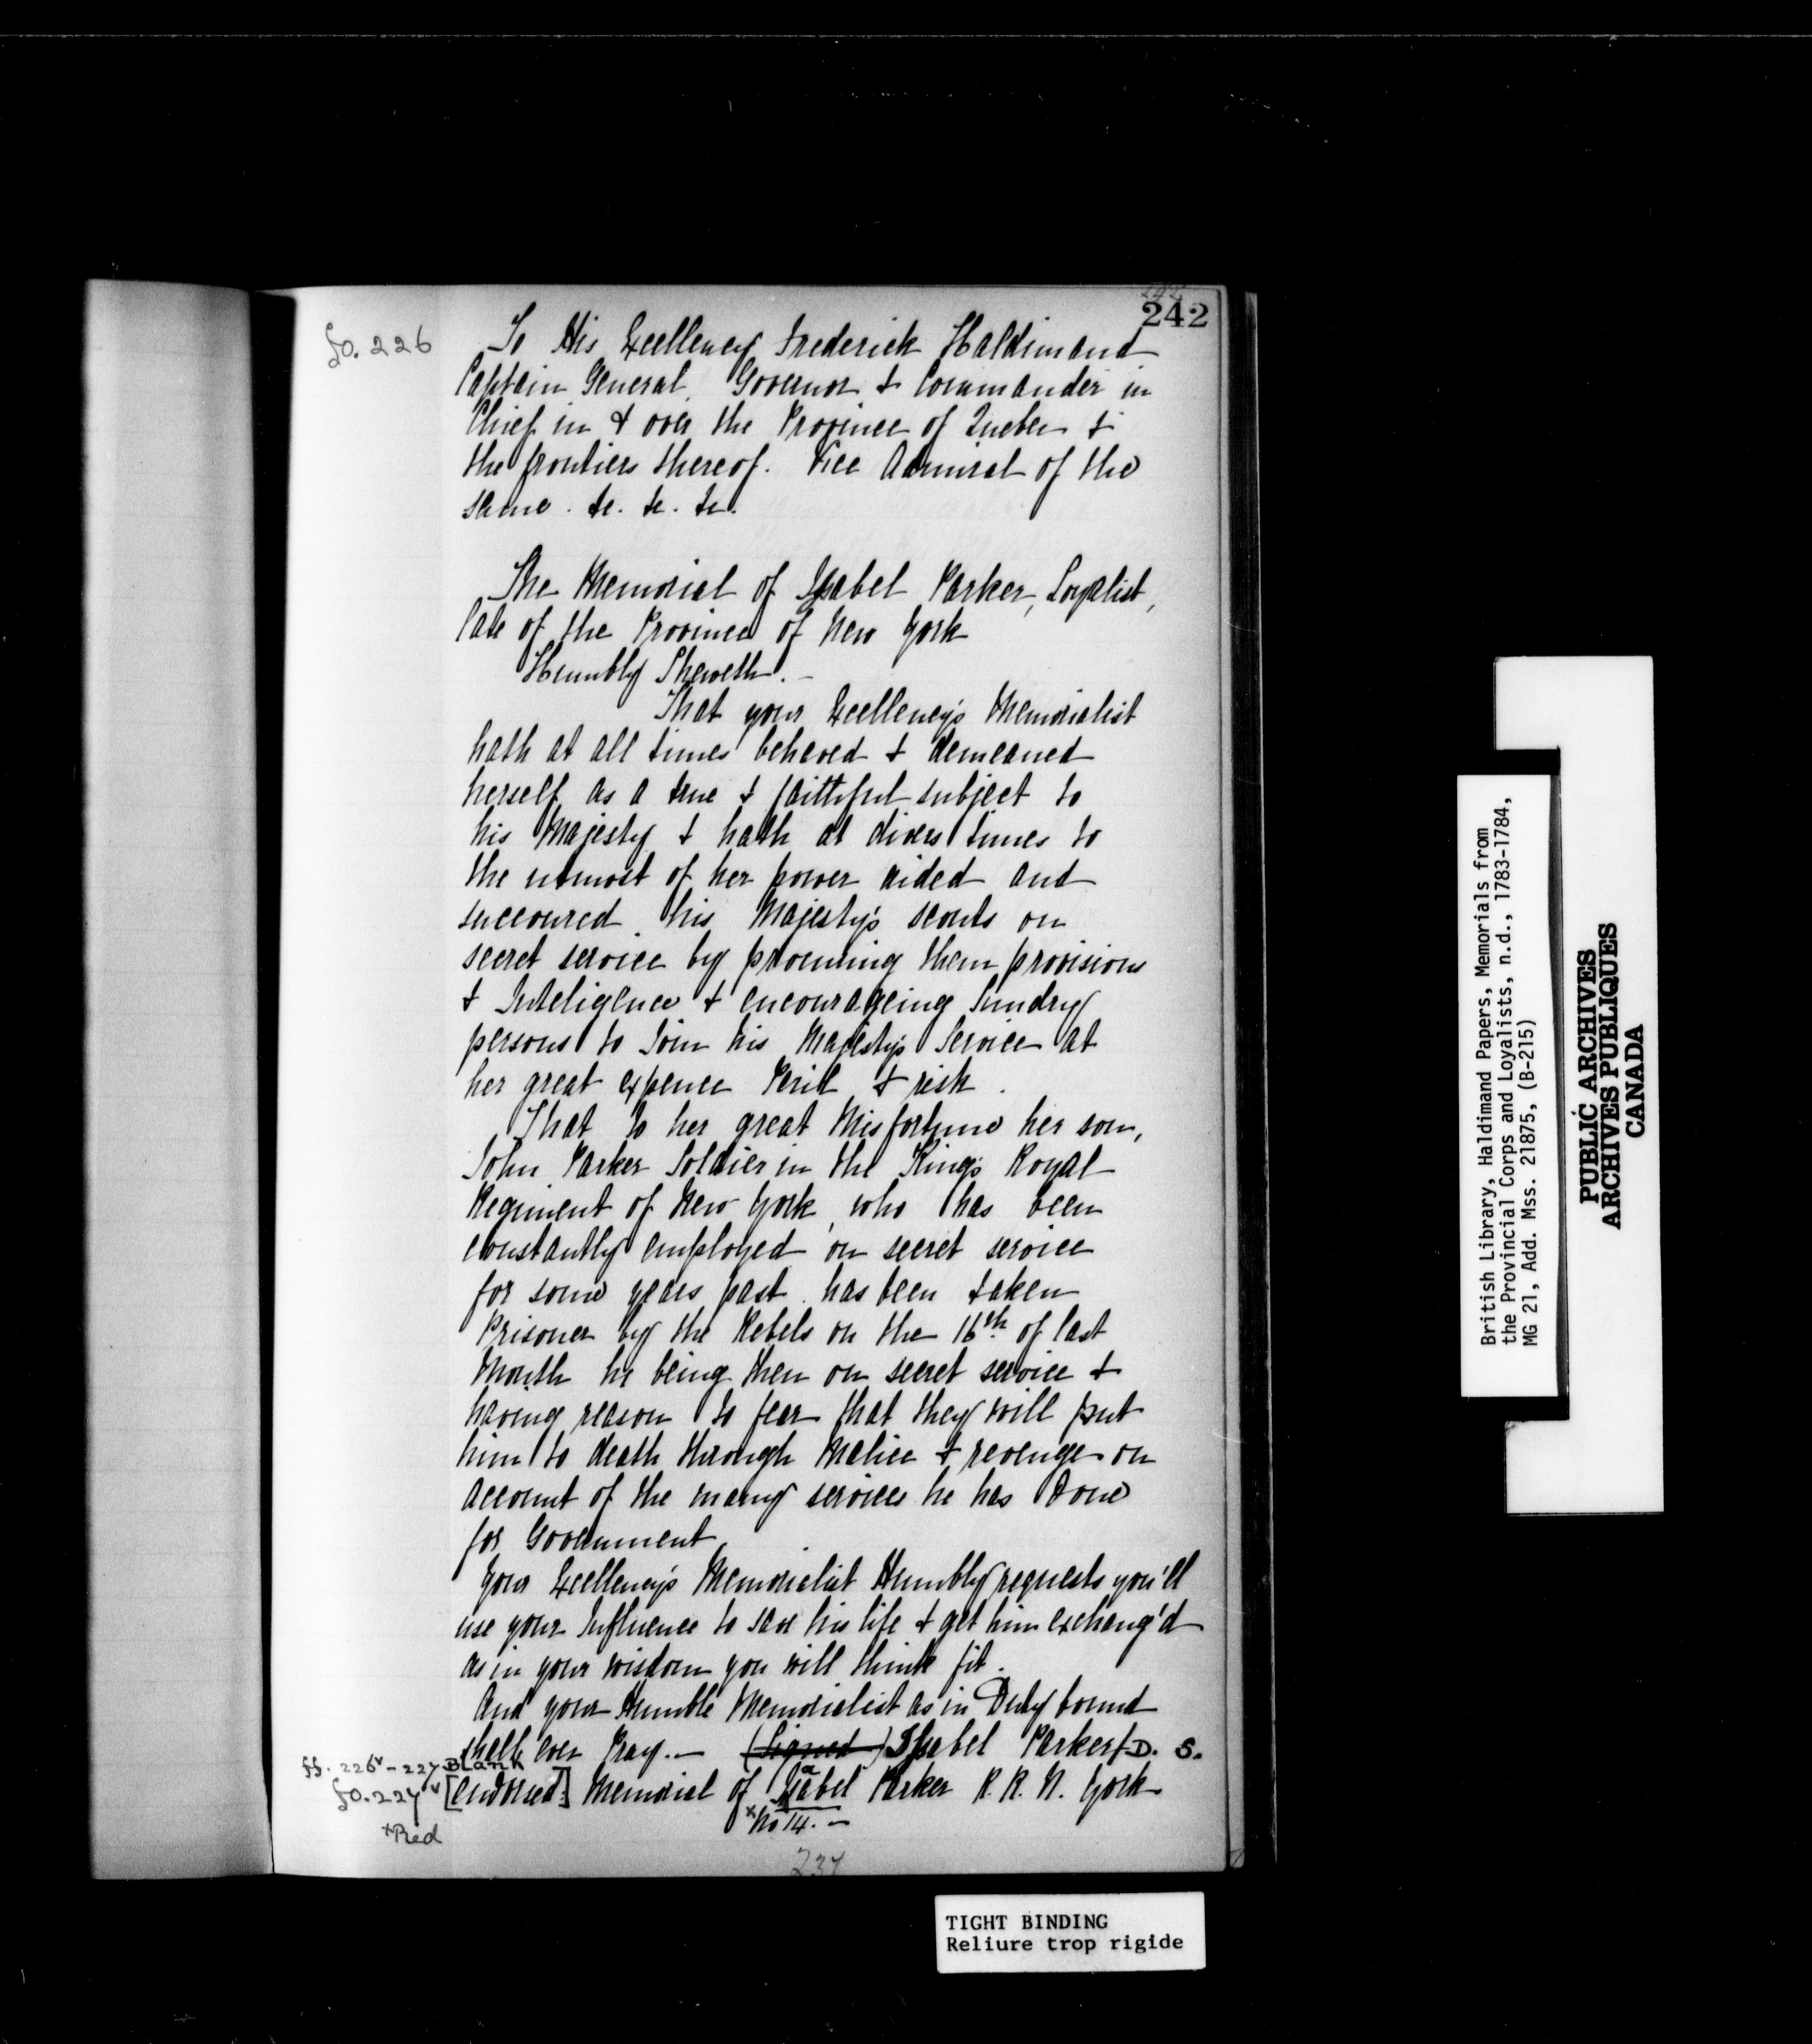 242
fo. 226
To His Excellency Frederick Haldimand
Captain General, Governor & Commander in
Chief in & over the Province of Quebec &
the frontiers thereof. Vice Admiral of the
same. &c. &c. &c.
The Memorial of Isabel Parker, Loyalist,
late of the Province of New York
Humbly Sheweth. -
That your Excellency's Memorialist
hath at all times behaved & demeaned
herself as a true & faithful subject to
his Majesty & hath at divers times to
the utmost of her power aided and
succoured his Majesty's scouts on
secret service by procuring them provisions
& Inteligence & encourageing Sundry
persons to Join his Majesty's Service at
her great expence Peril & risk.
That to her great Misfortune her son,
John Parker Soldier in the King's Royal
Regiment of New York, who has been
constantly employed on secret service
for some years past has been taken
Prisoner by the Rebels on the 16th of last
Month he being then on secret service &
having reason to fear that they will put
him to death through Malice & revenge on
account of the many services he has Done
for Government
Your Excellency's Memorialist Humbly requests you'll
use your Influence to save his life & get him exchang'd
as in your wisdom you will think fit.
And your Humble Memorialist as in Duty bound
shall ever Pray. - (Signed) Isabel Parker D. S.
ff. 226v - 227 Blank
fo. 227v [endorsed:] Memorial of Isabel Parker R. R. N. York
a
x No 14. -
x Red
237
British Library, Haldimand Papers, Memorials from
the Provincial Corps and Loyalists, n.d., 1783-1784,
MG 21, Add. Mss. 21875, (B-215)
PUBLIC ARCHIVES
ARCHIVES PUBLIQUES
CANADA
TIGHT BINDING
Reliure trop rigide